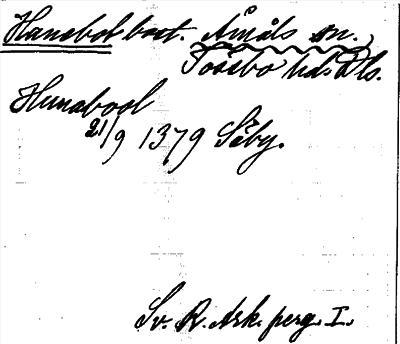 Hanebol bost. Åmåls sn.,
Tössbo hd. Dls.
Hunabool
21/9 1379 Säby.
Sv. R. Ark. perg. I.